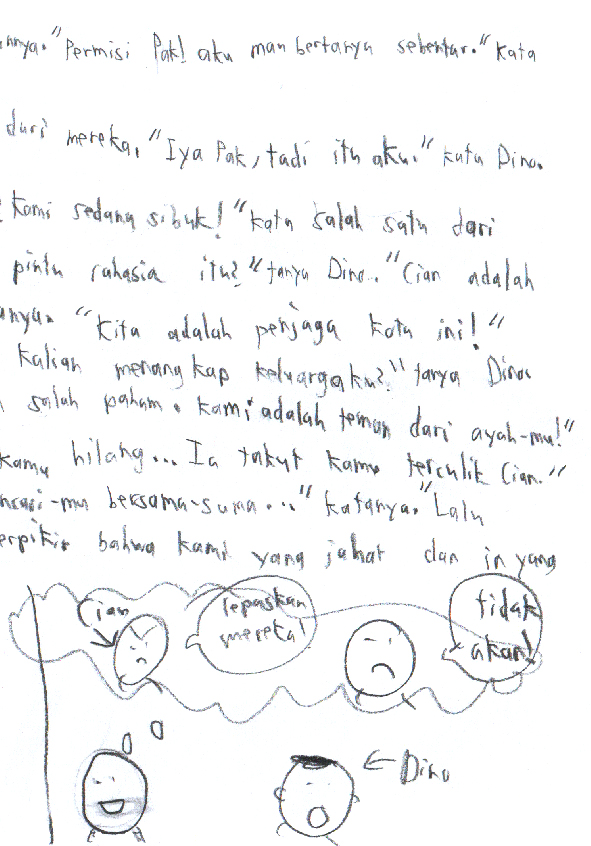 annya. "Permisi Pak! aku mau bertanya sebentar." kata
dari mereka. "Iya Pak, tadi itu aku." kata Dino.
kami sedang sibuk!" kata salah satu dari
pintu rahasia itu?" tanya Dino. "Cian adalah
anya. "Kita adalah penjaga kota ini!"
kalian menangkap keluargaku?" tanya Dino.
salah paham. kami adalah teman dari ayah-mu!"
kamu hilang... Ia takut kamu terculik Cian."
ncari-mu bersama-sama..." katanya. "Lalu
erpikir bahwa kami yang jahat dan in yang
Cian
lepaskan
mereka!
tidak
akan!
Dino